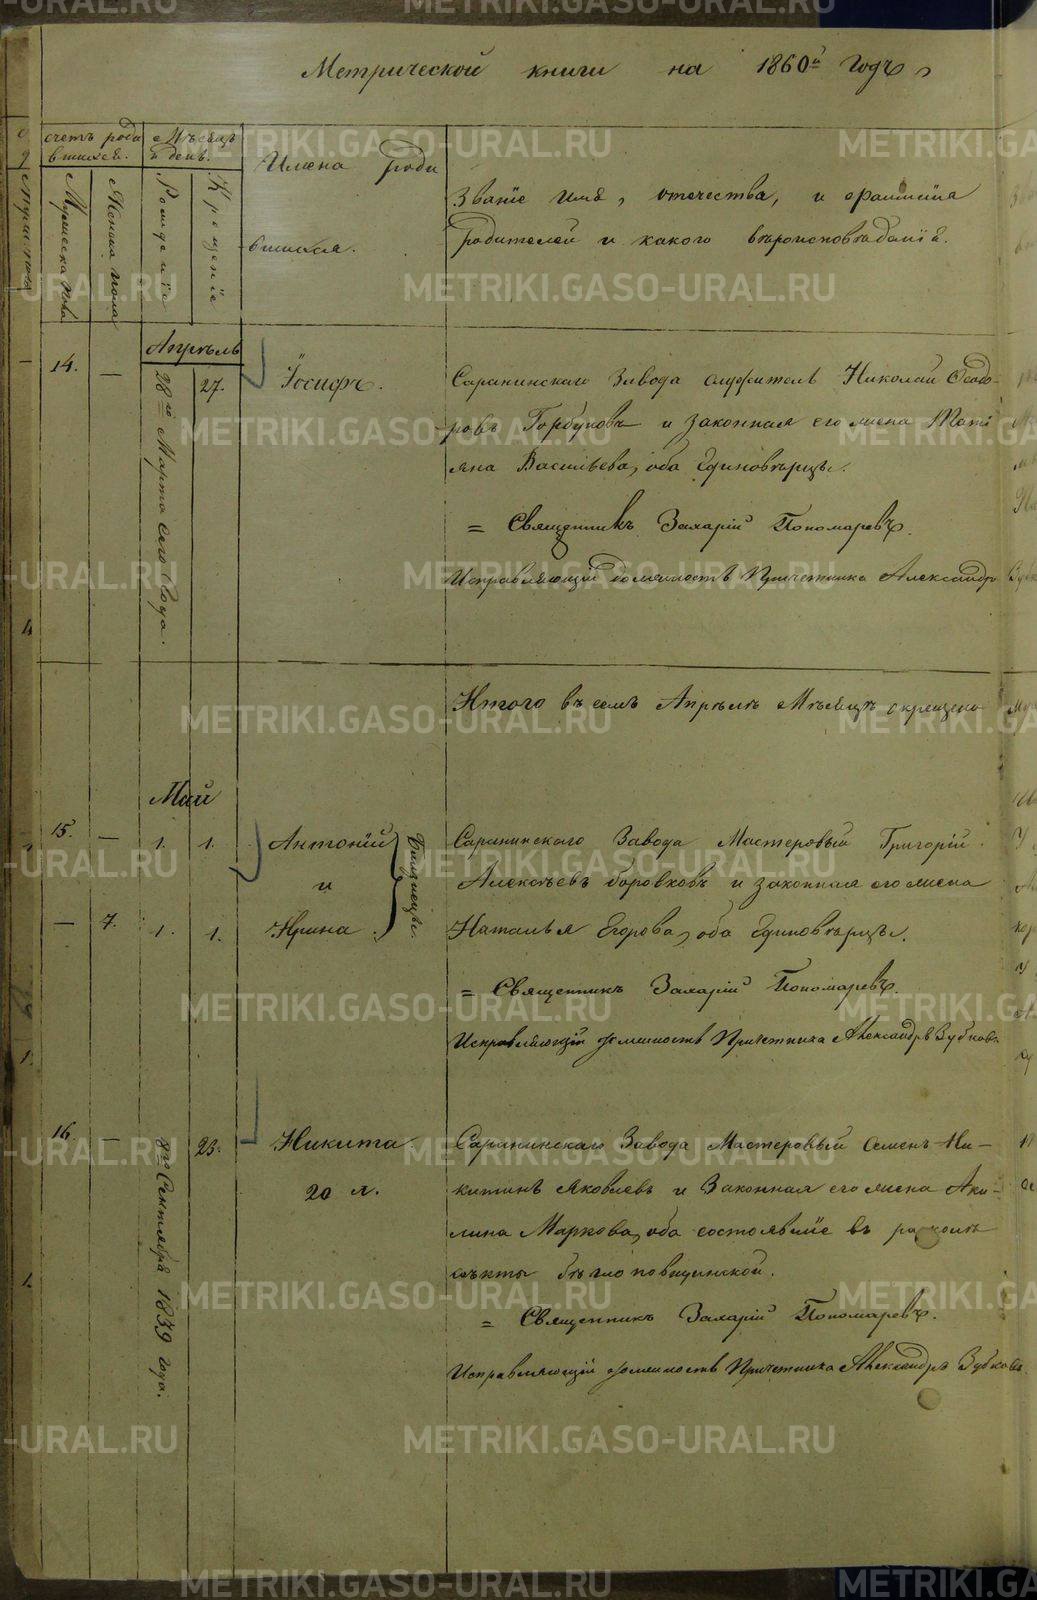 Метрической книги на 1860й Годъ,
счетъ роди
вшихся.
Мѣсяцъ
и день.
Мужеска пола
Женска пола
Рожденіе
Крещеніе
Имена роди
вшихся.
Званіе имя, отечества, и фамилія
Родителей и какого вѣроисповѣданія.
Апрѣль
14.
—
28го Марта сего Года.
27.
Іосифъ.
Саранинскаго Завода служитель Николай Ѳеодо-
ровъ Горбуновъ и законная его жена Тати
яна Васильева, оба Единовѣрцы.
= Священникъ Захарій Пономаревъ.
Исправляющій должность Причетника Александръ
Итого въ семъ Апрѣлѣ Мѣсяцѣ окрещено
Май
15.
—
1.
1.
Антоній
и
Близнецы.
Саранинскаго Завода Мастеровый Григорій
Алексѣевъ боровковъ и законная его жена
—
7.
1.
1.
Ирина
Наталья Егорова, оба Единовѣрцы.
= Священникъ Захарій Пономаревъ.
Исправляющій должность Причетника Александръ Зубковъ
16.
—
8го Сентября 1839 года.
23.
Никита
20 л.
Саранинскаго Завода Мастеровый Семенъ Ни-
китинъ Яковлевъ и Законная его жена Аки-
лина Маркова, оба состоявшіе въ расколѣ
сѣкты бѣглопоповщинской.
= Священникъ Захарій Пономаревъ.
Исправляющій должность Причетника Александръ Зубковъ
METRIKI.GASO-URAL.RU